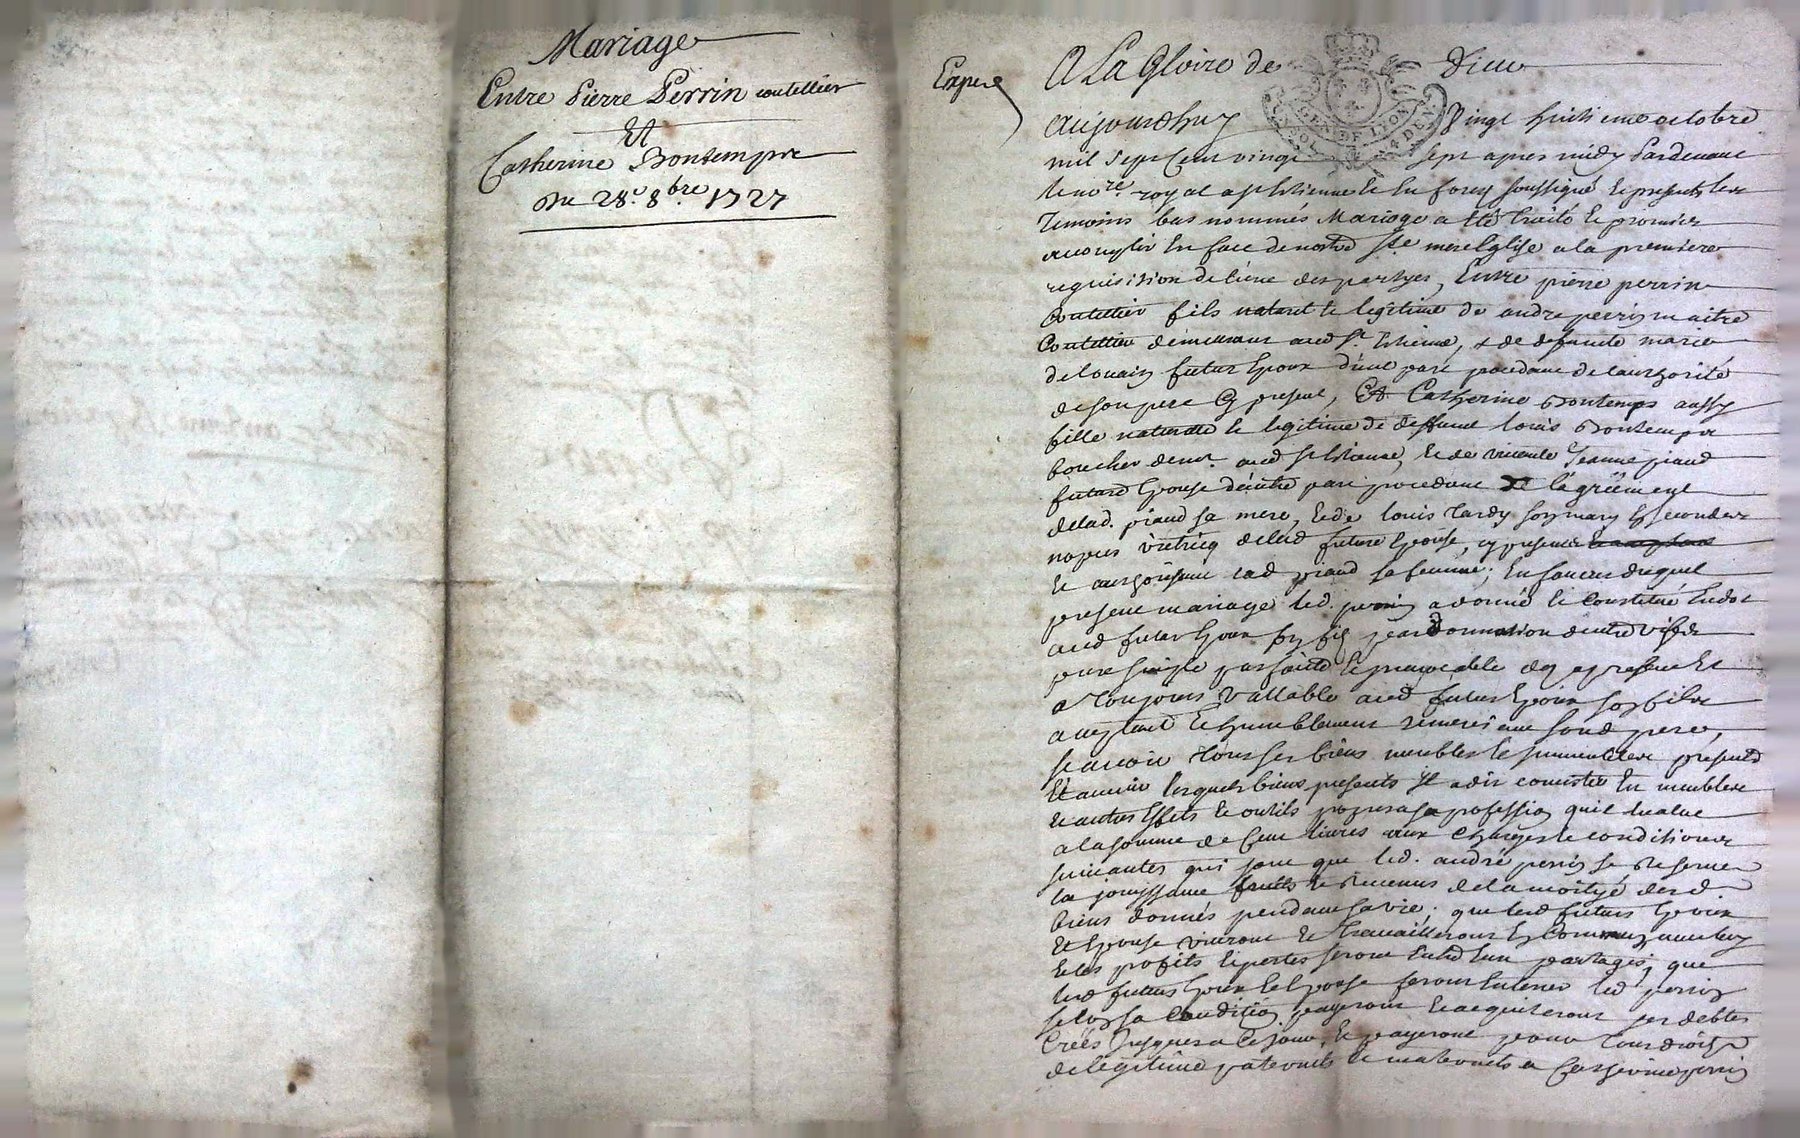 Mariage
Entre Pierre Perrin coutellier
Et
Catherine Bontemps
Du 28e. 8bre. 1727
Expé
A La Gloire de Dieu
Aujourdhuy Vingt huitieme octobre
GEN DE LYON
mil sept Cent vingt sept apres midy Pardevant
le nore. royal a st Estienne en forez soussigné et presents les
Temoins bas nommés Mariage a été traité et promis
accomplir En face de nostre Ste mere Eglise a la premiere
requisition de l'une des partyes, Entre pierre perrin
Coutellier fils naturel et legitime de andre perrin maitre
Coutellier demeurant aud St. Estienne, & de deffunte marie
delouain futur Epoux d'une part procedant de l'authorité
de son pere cy present, Et Catherine Bontemps aussy
fille naturelle et legitime de deffunt louis Bontemps
boucher demt. aud st Estienne, et de vivante Jeanne piaud
future Epouse d'autre part procedant de l'agréement
delad. piaud sa mere, et de louis Tardy son mary En secondes
nopces delad future Epouse, cy presents
et authorisant lad piaud sa femme; En faveur duquel
present mariage led. perrin a donné et constitué En dot
aud futur Epoux son fils par donnation d'entre vifs
pure simple parfaite et irrevocable des a present et
a toujours vallable aud futur Epoux son fils
acceptant et humblement remerciant sond pere,
scavoir tous ses biens meubles et immeubles presents
Et avenir lesquels biens presents Il a dit consister En meubles
et autres Effets et outils propres a sa profession qu'il Evalue
a la somme de Cent livres aux charges et conditions
suivantes qui sont que led. andré perrin se reserve
la jouyssance fruits et revenus de la moityé desd
biens donnés pendant sa vie; que lesd futurs Epoux
Et Epouse vivront et travailleront En Commun avec luy
et les profits et pertes seront Entre Eux partagés; que
lesd futurs Epoux et Epouse feront Enterrer led perrin
selon sa condition payeront et acquitteront ses debtes
Créés jusques a ce jour, et payeront pour tous droits
de legitime paternels et maternels a Catherine perrin